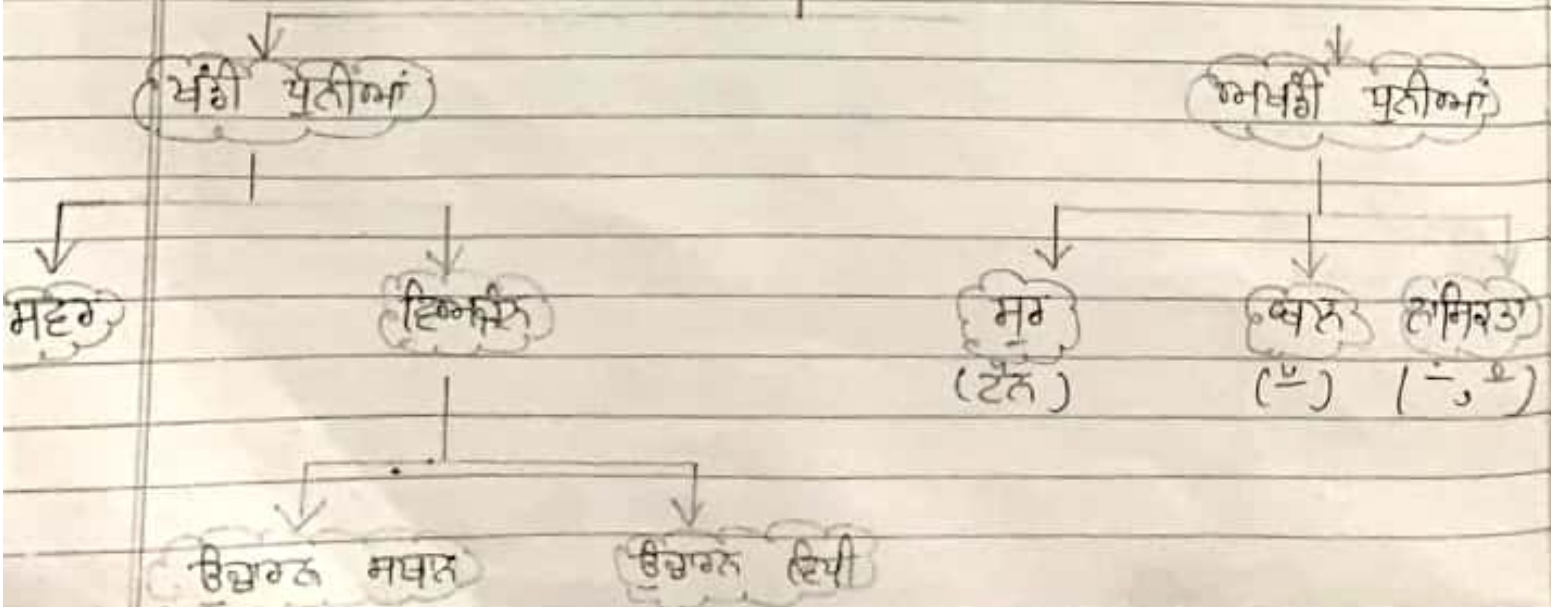 ਖੰਡੀ ਧੁਨੀਆਂ ਅਖੰਡੀ ਧੁਨੀਆਂ
ਸਵਰ ਵਿਅਜੰਨ ਸੁਰ ਬਲ ਨਾਸਿਕਤਾ
(ਟੋਨ) ( ੱ ) ( ੰ , ਂ )
ਉਚਾਰਨ ਸਥਾਨ ਉਚਾਰਨ ਵਿਧੀ